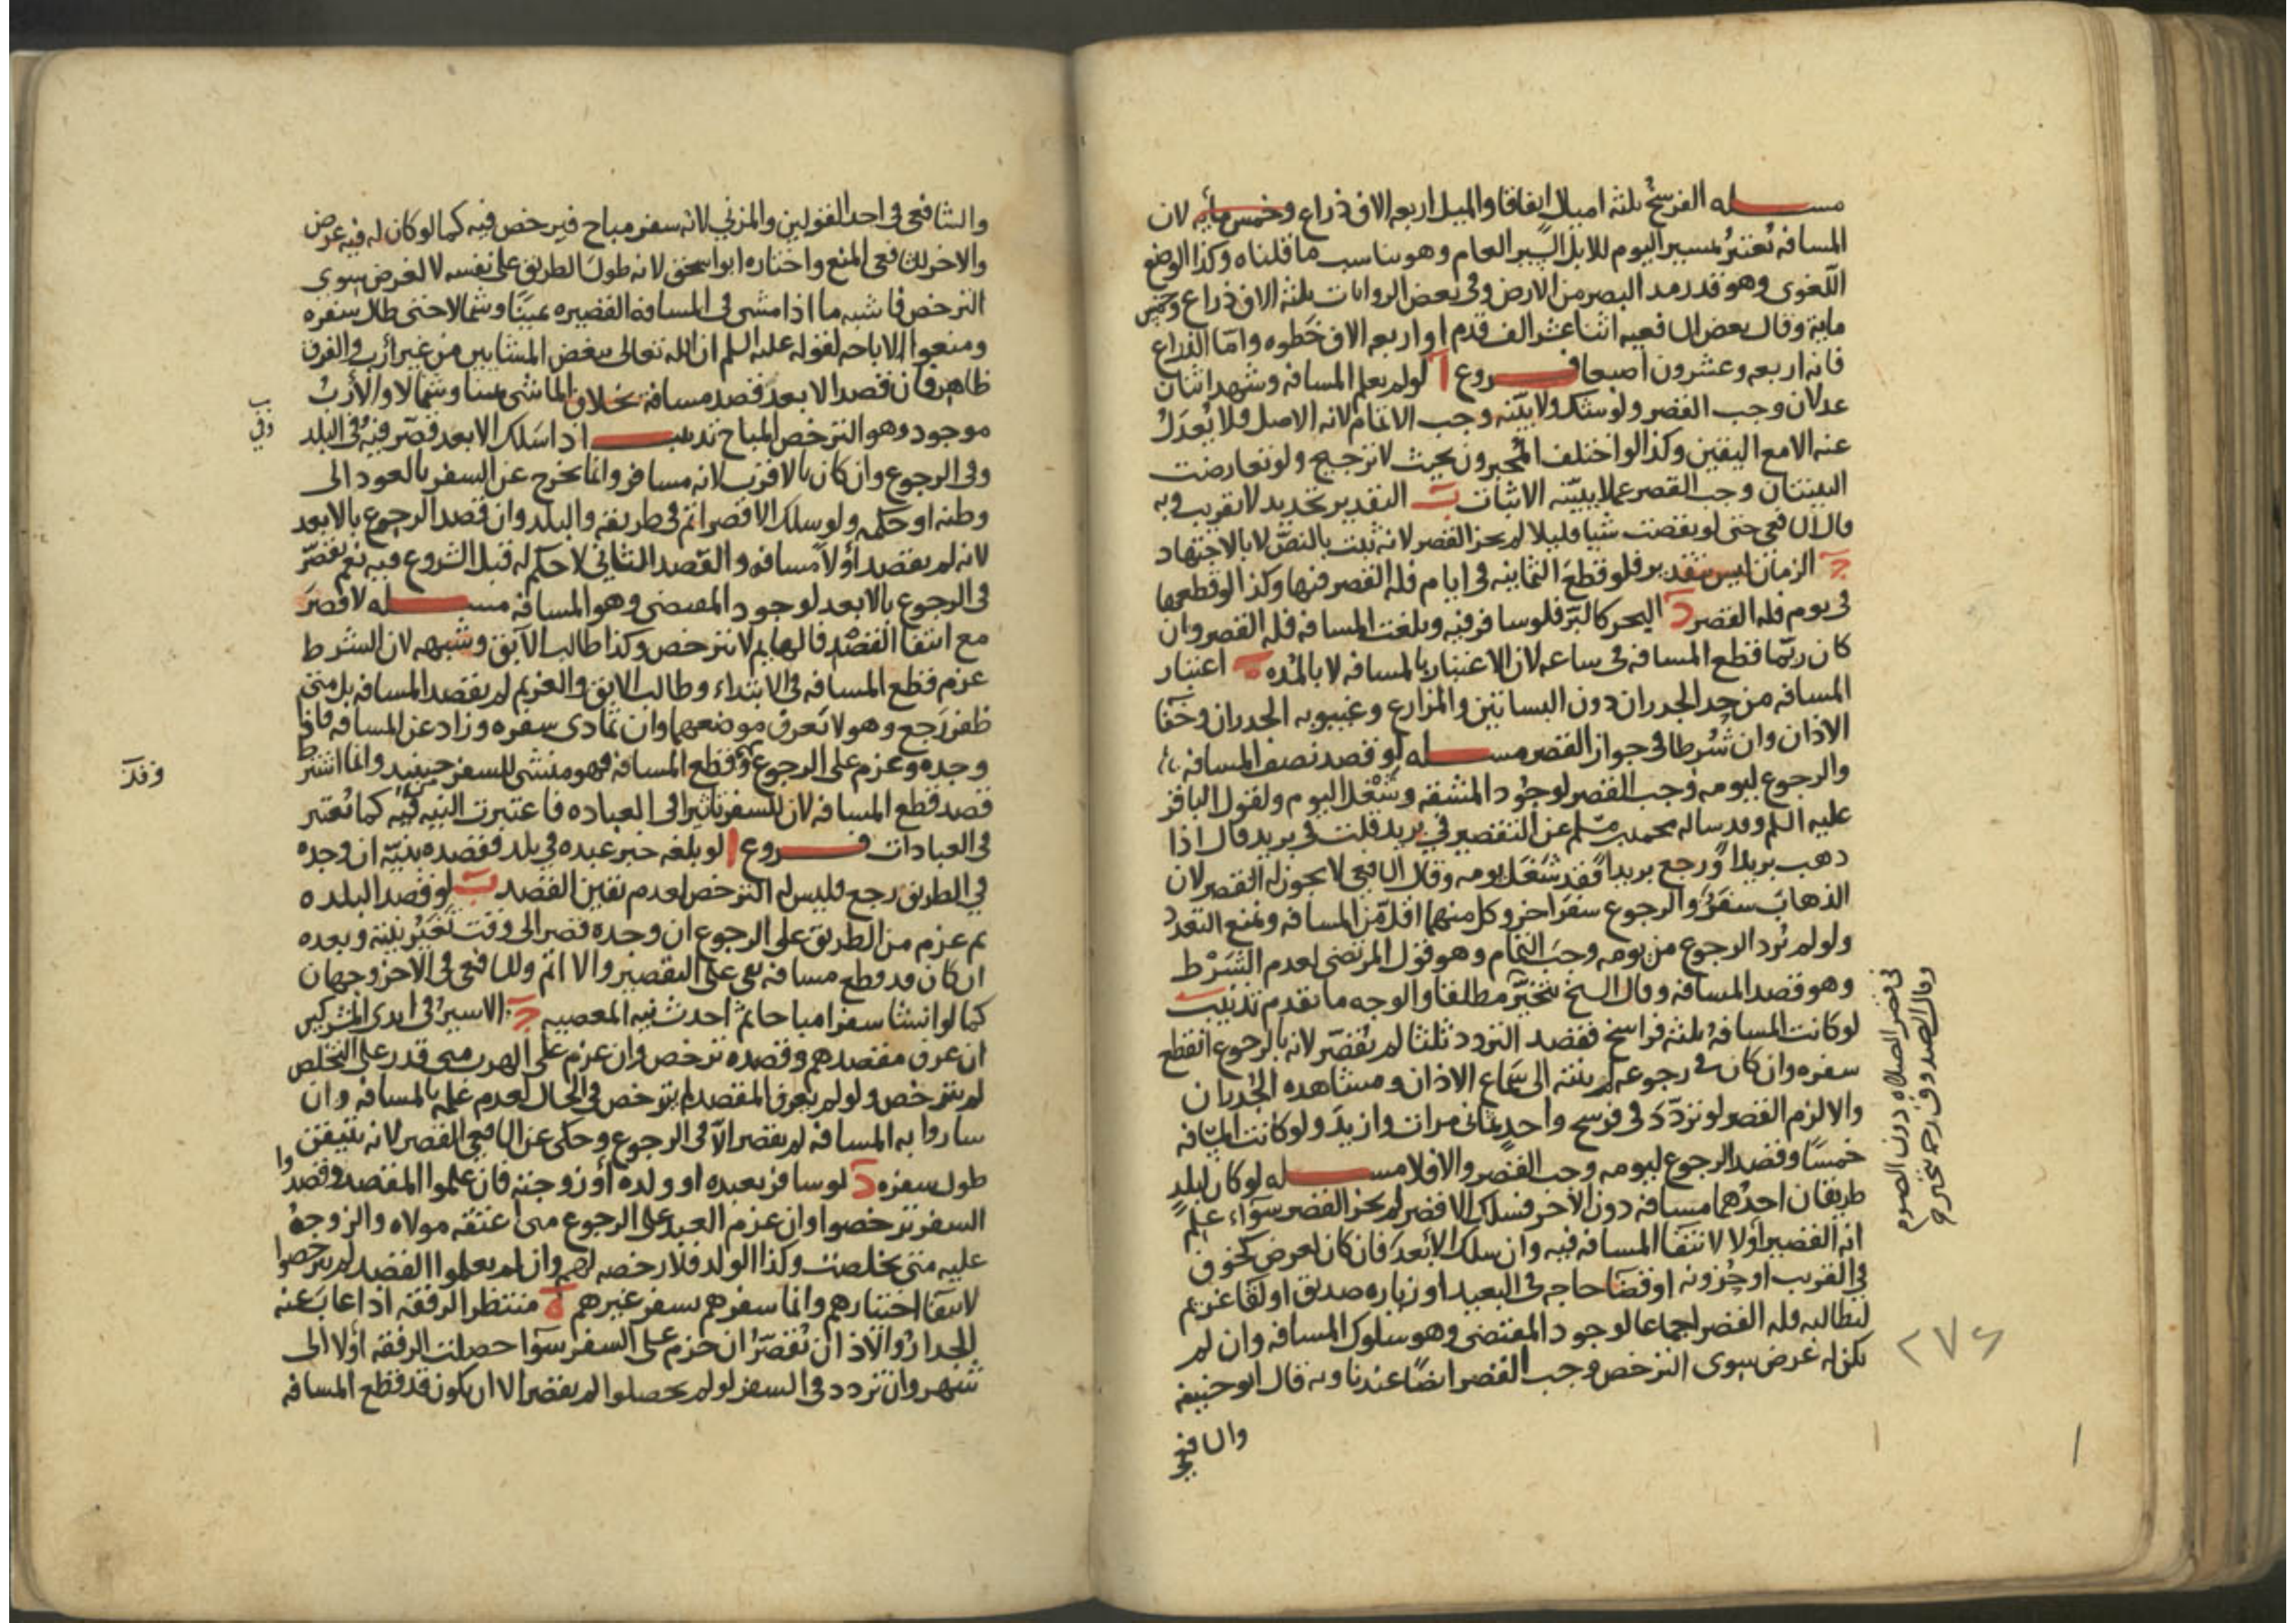 مسله الفرسخ ثلثة اميال اتفاقا والميل اربعه الاف ذراع وخمس مأيه لان
المسافه تعتبر بمسير اليوم للابل السير العام وهو يناسب ما قلناه وكذا الوضع
اللغوى وهو قدر مد البصر من الارض وفى بعض الروايات ثلثة الاف ذراع وخمس
ماية وقال بعض الشافعيه اثنا عشر الف قدم او اربعه الاف خطوه وامّا الذراع
فانه اربعه وعشرون اصبعا فروع آ لو لم يعلم المسافه وشهد اثنان
عدلان وجب القصر ولو شك ولا بيّنه وجب الاتمام لانه الاصل فلا يُعدَلُ
عنه الا مع اليقين وكذا لو اختلف المُخبرون بحيث لا ترجيح ولو تعارضت
البينتان وجب القصر عملا ببيّنه الاثبات ب التقدير تحديد لا تقريب وبه
قال الشافعى حتى لو نقصت شيا قليلا لم يجز القصر لانه ثبت بالنصّ لا بالاجتهاد
ج الزمان ليس بتقدير فلو قطع الثمانيه فى ايام فله القصر فيها وكذا لو قطعها
فى يوم فله القصر د البحر كالبرّ فلو سافر فيه وبلغت المسافه فله القصر وان
كان ربّما قطع المسافه فى ساعه لان الاعتبار بالمسافه لا بالمُده ه اعتبار
المسافه من حد الجدران دون البساتين والمزارع وغيبوبه الجدران وخفآ
الاذان وان شُرطا فى جواز القصر مسله لو قصد نصف المسافه
والرجوع ليومه وجب القصر لوجُود المشقه وشغل اليوم ولقول الباقر
عليه السلم وقد ساله محمد بن مسلم عن التقصير فى بريد قلت فى بريد قال اذا
ذهب بريداً ورجع بريداً فقد شغَل يومه وقال الشافعى لا يجوز له القصر لان
الذهاب سفرٌ والرجوع سفر اخر وكل منهما اقل من المسافه ونمنع التعدد
ولو لم يُرد الرجوع من يومه وجب التمام وهو قول المرتضى لعدم الشَرْط
وهو قصد المسافه وقال الشيخ يتخيّر مطلقا والوجه ما تقدم تذنيب
لو كانت المسافه ثلثة فراسخ فقصد التردد ثلثا لم يُقصّر لانه بالرجوع انقطع
سفره وان كان فى رجوعه لم ينته الى سَماع الاذان ومشاهده الجُدران
والا لزم القصر لو تردّد فى فرسخ واحد ثمانى مرات وازيد ولو كانت المسافه
خمسًا وقصد الرجوع ليومه وجب القصر والا فلا مسله لو كان لبلدٍ
طريقان احدُهما مسافه دون الاخر فسلك الاقصر لم يجز القصر سوآء علم
انه القصير اولا لانتفا المسافه فيه وان سلك الابعد فان كان لعرض كخوف
فى القريب او حزونه او قضآ حاجه فى البعيد او زياره صديق او لقا غريم
ليطالبه فله القصر اجماعا لوجود المقتضى وهو سلوك المسافه وان لم
يكن له غرض سوى الترخص وجب القصر ايضًا عندنا وبه قال ابو حنيفه
والشافعى
فى قصر الصلاه دون الصوم
وقال الصدوق رحمه يتخير
٢٧٤
والشافعى فى احد القولين والمزنى لانه سفر مباح فيرخص فيه كما لو كان له فيه غرض
والاخر للشافعى المنع واختاره ابو اسحق لانه طول الطريق على نفسه لا لغرض سوى
الترخص فاشبه ما اذا مشى فى المسافه القصيره يمينًا وشمالا حتى طال سفره
ومنعوا الاباحه لقوله عليه السلم ان الله تعالى يبغض المشايين من غير أرب والفرق
ظاهر فان قصد الابعد قصد مسافه بخلاف الماشى يمينا وشمالا والأربُ
موجود وهو الترخص المباح تذنيب اذا سَلك الابعد قصّر فيه وفى البلد
وفى الرجوع وان كان بالاقرب لانه مسافر وانما يخرج عن السفر بالعود الى
وطنه او حكمه ولو سلك الاقصر اتم فى طريقه والبلد وان قصد الرجوع بالابعد
لانه لم يقصد أولاً مسافه والقصد الثانى لا حكم له قبل الشروع فيه نعم يقصّر
فى الرجوع بالابعد لوجود المقتضى وهو المسافه مسله لا قصرَ
مع انتفا القصْد فالهايم لا يترخص وكذا طالب الآبق وشبهه لان الشرط
عزم قطع المسافه فى الابتداء وطالب الابق والغريم لم يقصد المسافه بل متى
ظفر رَجع وهو لا يَعرف موضعهما وان تمادى سفره وزاد عن المسافه فاذا
وجده وعزم على الرجوع وقطع المسافه فهو منشى للسفر من حينيد وانما اشترط
قصد قطع المسافه لان للسفر تاثيرا فى العباده فاعتبرت النيه فيه كما تُعتبر
فى العبادات فروع ا لو بلغه خبر عبده فى بلد فقصده بنيّة ان وجده
فى الطريق رجع فليس له الترخص لعدم تقين القصد ب لو قصد البلده
ثم عزم من الطريق على الرجوع ان وجده قصر الى وقت تَغَيُر نيته وبعده
ان كان قد قطع مسافه بقى على التقصير والا اتم وللشافعى فى الاخر وجهان
كما لو انشا سفرا مباحا ثم احدث نيه المعصيه ج الاسير فى ايدى المشركين
ان عرف مقصدهم وقصده ترخص وان عزم على الهرب متى قدر على التخلص
لم يترخص ولو لم يعرف المقصد لم يترخص فى الحال لعدم علمه بالمسافه وان
ساروا به المسافه لم يقصر الّا فى الرجوع وحكى عن الشافعى القصر لانه تيقن
طول سفره د لو سافر بعبده او ولده أو زوجته فان علموا المقصد وقصدوا
السفر ترخصوا وان عزم العبد على الرجوع متى اعتقه مولاه والزوجه
عليه متى تخلصت وكذا الولد فلا رخصه لهم وان لم يعلموا القصد لم يترخصوا
لانتفآ اختيارهم وانما سفرهم بسفر غيرهم ه منتظر الرفقه اذا غابَ عنه
الجدار والاذان يُقصّرُ ان جزم على السفر سوآ حصلت الرفقه اولا الى
شهر وان تردد فى السفر لو لم يحصلوا لم يقصر الا ان يكون قد قطع المسافه
وفى
وقد